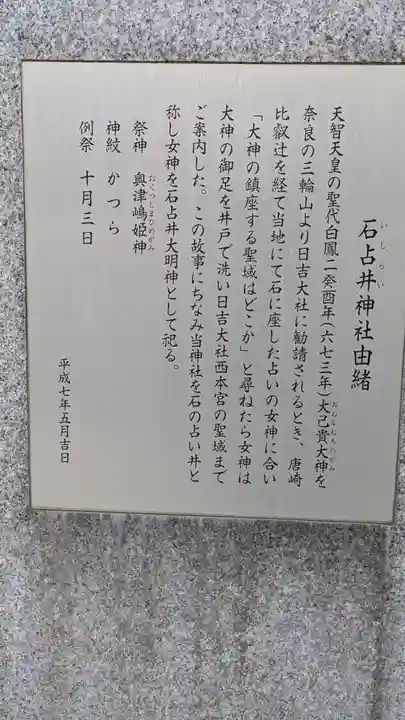 石占井神社由緒
いしうらい
天智天皇の聖代白鳳二癸酉年(六七三年)大己貴大神を
おおむなむちのかみ
奈良の三輪山より日吉大社に勧請されるとき、唐崎
比叡辻を経て当地にて石に座した占いの女神に合い
「大神の鎮座する聖域はどこか」と尋ねたら女神は
大神の御足を井戸で洗い日吉大社西本宮の聖域まで
ご案内した。この故事にちなみ当神社を石の占い井と
称し女神を石占井大明神として祀る。
祭神 奥津嶋姫神
おくつしまひめがみ
神紋 かつら
例祭 十月三日
平成七年五月吉日